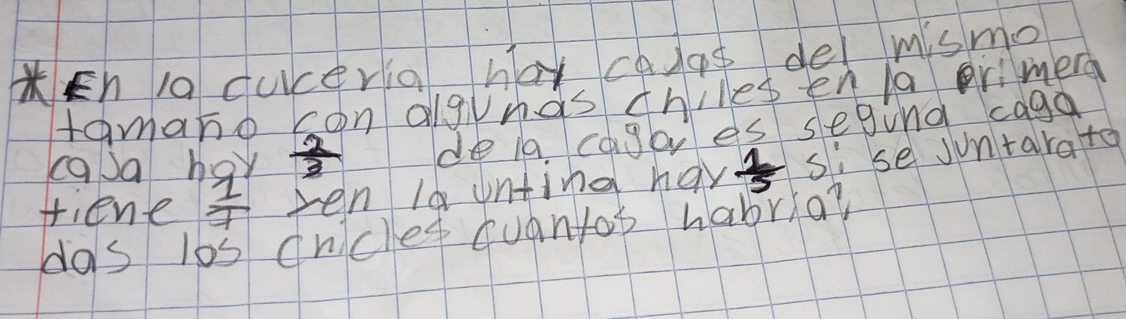 * En la culceria hay cajas del mismo
tamaño con algunas chiles en la primera
caja hay 2/3 de la caga y es segund caga
tiene 1/7 y en la untina hay 1/5 si se juntara to
das los chicles cuantos habria?